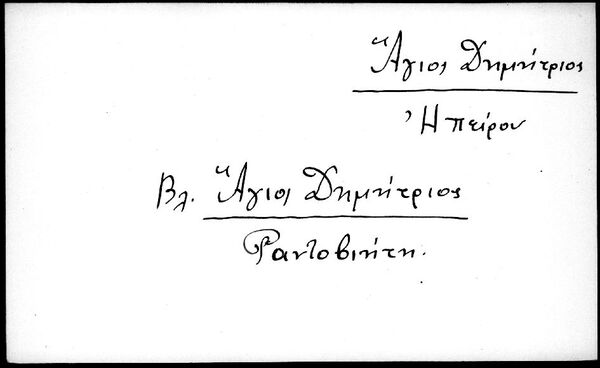 Ἅγιος Δημήτριος
Ἠπείρου
Βλ. Ἅγιος Δημήτριος
Ραντοβιζτη.